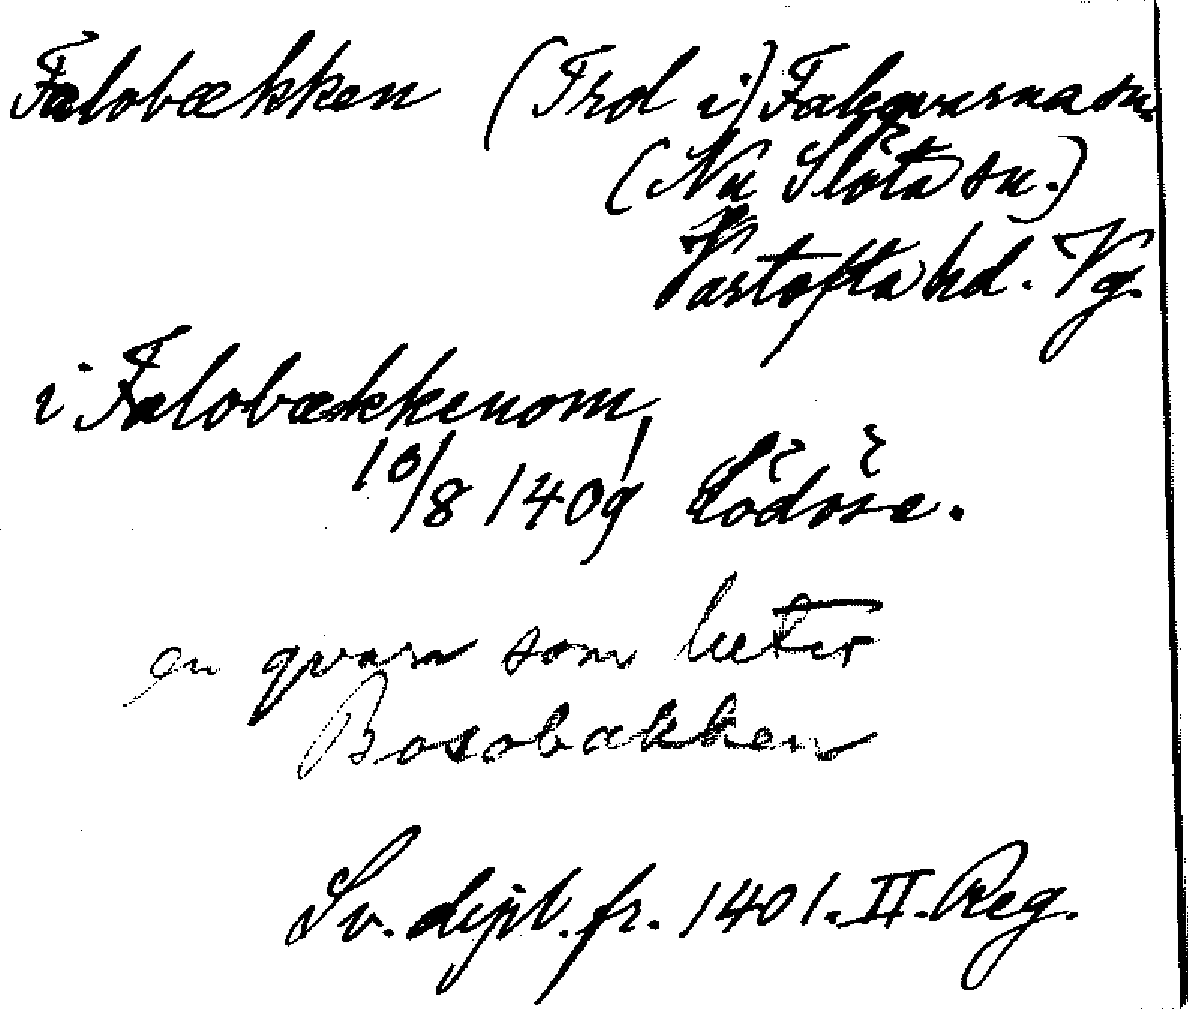 Falobækken (Trol i) Faleqvarna sn.
(Nu Slöta sn.)
Vartofta hd. Vg.
i Falobækkenom
10/8 1409 Lödöse.
en qvarn som heter
Bosobækken
Sv. dipl. fr. 1401. II. Reg.